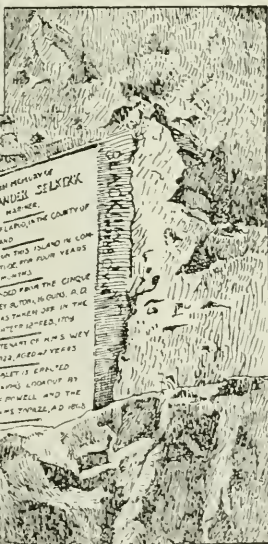 IN MEMORY OF
ANDER SELKIRK
MARINER,
F LARGO, IN THE COUNTY OF
AND
ON THIS ISLAND IN COM-
TUDE FOR FOUR YEARS
MONTHS
DED FROM THE CINQUE
GUNS, A.D.
AS TAKEN OFF IN THE
12TH FEB., 1709
TENANT OF H.M.S. WEY
AGED 47 YEARS
BLET IS ERECTED
LOOKOUT BY
POWELL AND THE
TOPAZE, A.D. 1868